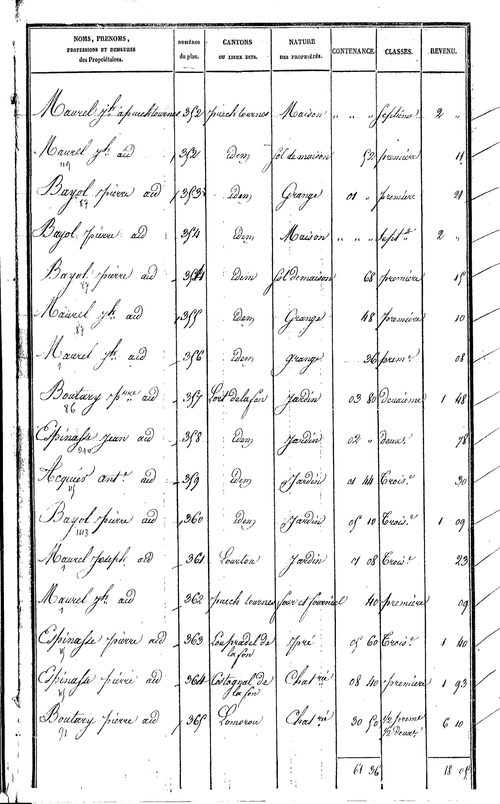 NOMS, PRENOMS,
PROFESSIONS ET DEMEURES
des Propriétaires.
NUMÉROS
du plan.
CANTONS
OU LIEUX DITS.
NATURE
DES PROPRIÉTÉS.
CONTENANCE.
CLASSES.
REVENU.
Maurel jh. à puechtournes 352 puech tournes Maison " " " Septième 2 "
Maurel jh. aid 352 idem Sol de maison 52 première 14
Bayol pierre aid 353 idem Grange 01 " première 21
87
Bayol pierre aid 354 idem Maison " " " Sept.e 2 "
Bayol pierre aid 354 idem Sol de maison 68 première 15
87
Maurel jh. aid 355 idem Grange 48 première 10
87
Maurel jh. aid 356 idem grange 36 prem.e 08
1
Boutary p.rre aid 357 Lort delafon Jardin 03 80 Deuxième 1 48
86
Espinasse jean aid 358 idem Jardin 02 " deux.e 78
Acquiés ant.e aid 359 idem Jardin 01 44 Trois.e 30
Bayol pierre aid 360 idem Jardin 05 10 Trois.e 1 09
Maurel joseph aid 361 Lourtou Jardin 01 08 Trois.e 23
1
Maurel jh. aid 362 puech tournes four et fournial 40 première 09
1
Espinasse pierre aid 363 Loupradel de Pré 05 60 Trois.e 1 40
la fon
Espinasse pierre aid 364 Costognal de Chat.rie 08 40 première 1 93
la fon
Boutary pierre aid 365 Lomerou Chat.rie 30 50 1/2 preme 6 10
91 1/2 deux.e
61 36 18 05